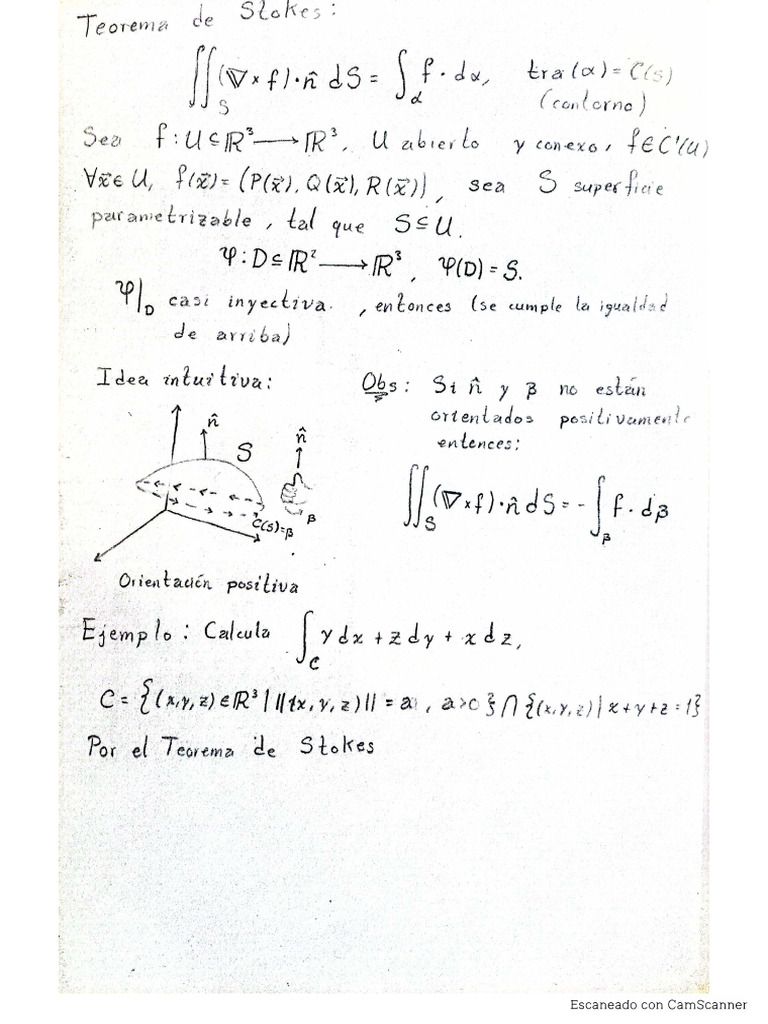 Teorema de Stokes:
∬_S (∇×f)·n̂ dS = ∫_α f·dα, tra(α) = C(s)
(contorno)
Sea f: U⊆ℝ³ ⟶ ℝ³, U abierto y conexo, f∈C'(U)
∀x⃗∈U, f(x⃗) = (P(x⃗), Q(x⃗), R(x⃗)), sea S superficie
parametrizable, tal que S⊆U.
Ψ: D⊆ℝ² ⟶ ℝ³, Ψ(D) = S.
Ψ|_D casi inyectiva. , entonces (se cumple la igualdad
de arriba)
Idea intuitiva:
n̂
S
n̂
β
C(S)=β
Orientación positiva
Obs: Si n̂ y β no están
orientados positivamente
entonces:
∬_S (∇×f)·n̂ dS = -∫_β f·dβ
Ejemplo: Calcula ∫_C y dx + z dy + x dz,
C = {(x,y,z)∈ℝ³ | ||(x,y,z)|| = a, a>0} ∩ {(x,y,z) | x+y+z=1}
Por el Teorema de Stokes
Escaneado con CamScanner